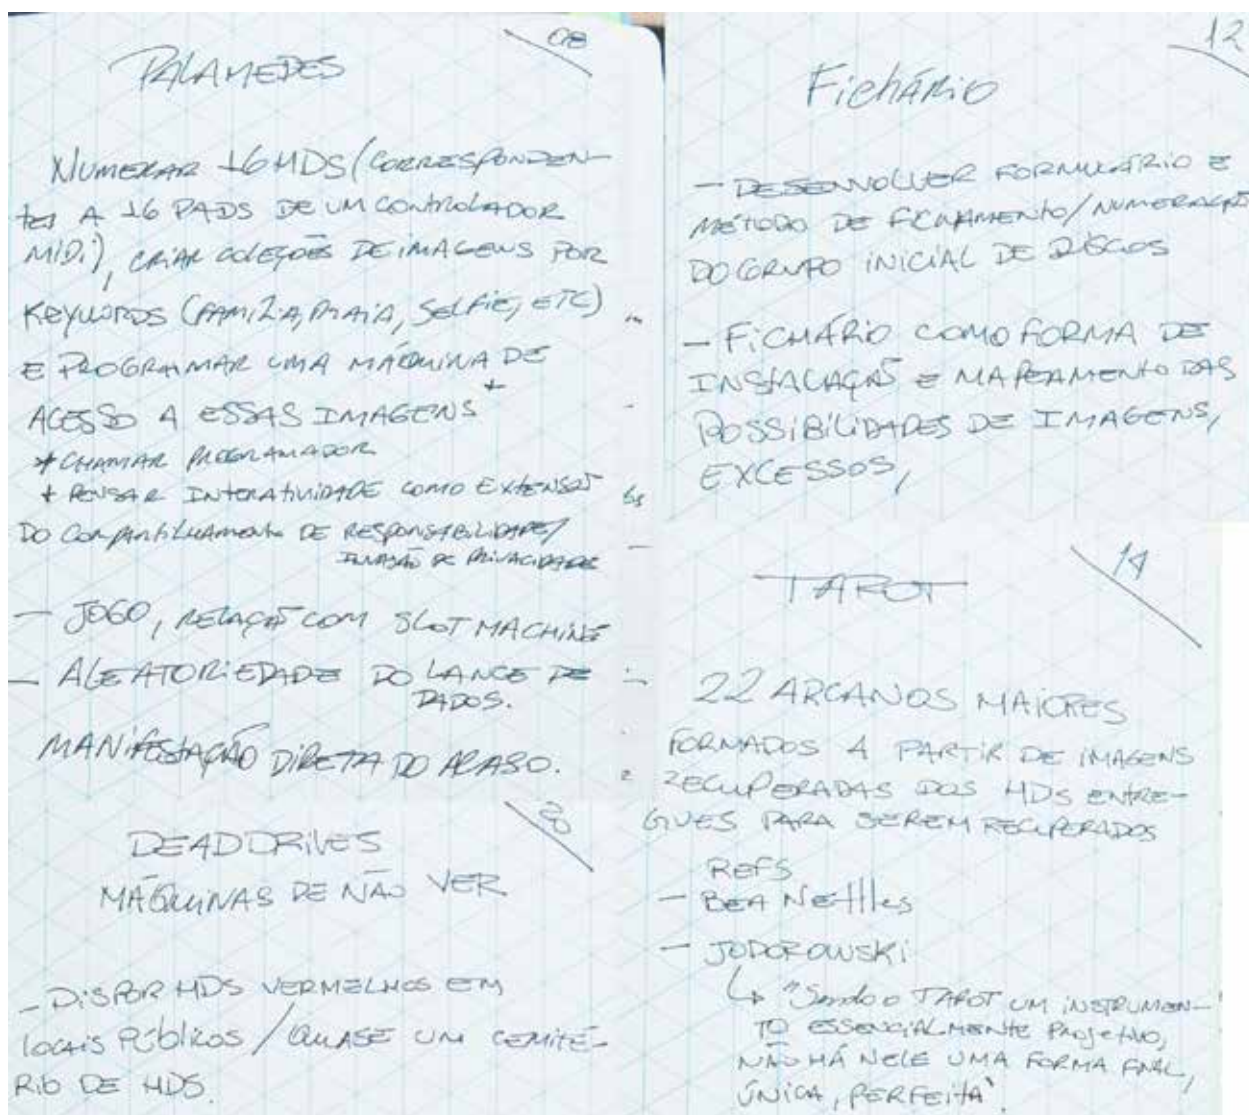 08
PALAMEDES
NUMERAR 16 HDS (CORRESPONDEN-
tes A 16 PADS DE UM CONTROLADOR
MIDI), CRIAR COLEÇÕES DE IMAGENS POR
KEYWORDS (FAMÍLIA, PRAIA, SELFIE, ETC)
E PROGRAMAR UMA MÁQUINA DE
ACESSO A ESSAS IMAGENS *
* CHAMAR PROGRAMADOR
* PENSAR INTERATIVIDADE COMO EXTENSÃO
DO COMPARTILHAMENTO DE RESPONSABILIDADE/
INVASÃO DE PRIVACIDADE
- JOGO, RELAÇÃO COM SLOT MACHINE
- ALEATORIEDADE DO LANCE DE
DADOS.
MANIFESTAÇÃO DIRETA DO ACASO.
20
DEADDRIVES
MÁQUINAS DE NÃO VER
- DISPOR HDS VERMELHOS EM
LOCAIS PÚBLICOS / QUASE UM CEMITÉ-
RIO DE HDS.
12
FICHÁRIO
- DESENVOLVER FORMULÁRIO E
MÉTODO DE FICHAMENTO/NUMERAÇÃO
DO GRUPO INICIAL DE DISCOS
- FICHÁRIO COMO FORMA DE
INSTALAÇÃO E MAPEAMENTO DAS
POSSIBILIDADES DE IMAGENS,
EXCESSOS,
14
TAROT
22 ARCANOS MAIORES
FORMADOS A PARTIR DE IMAGENS
RECUPERADAS DOS HDS ENTRE-
GUES PARA SEREM RECUPERADOS
REFS
- BEA Nettles
- JODOROWSKI
↳ "Sendo o TAROT UM INSTRUMEN-
TO ESSENCIALMENTE PROJETIVO,
NÃO HÁ NELE UMA FORMA FINAL,
ÚNICA, PERFEITA".